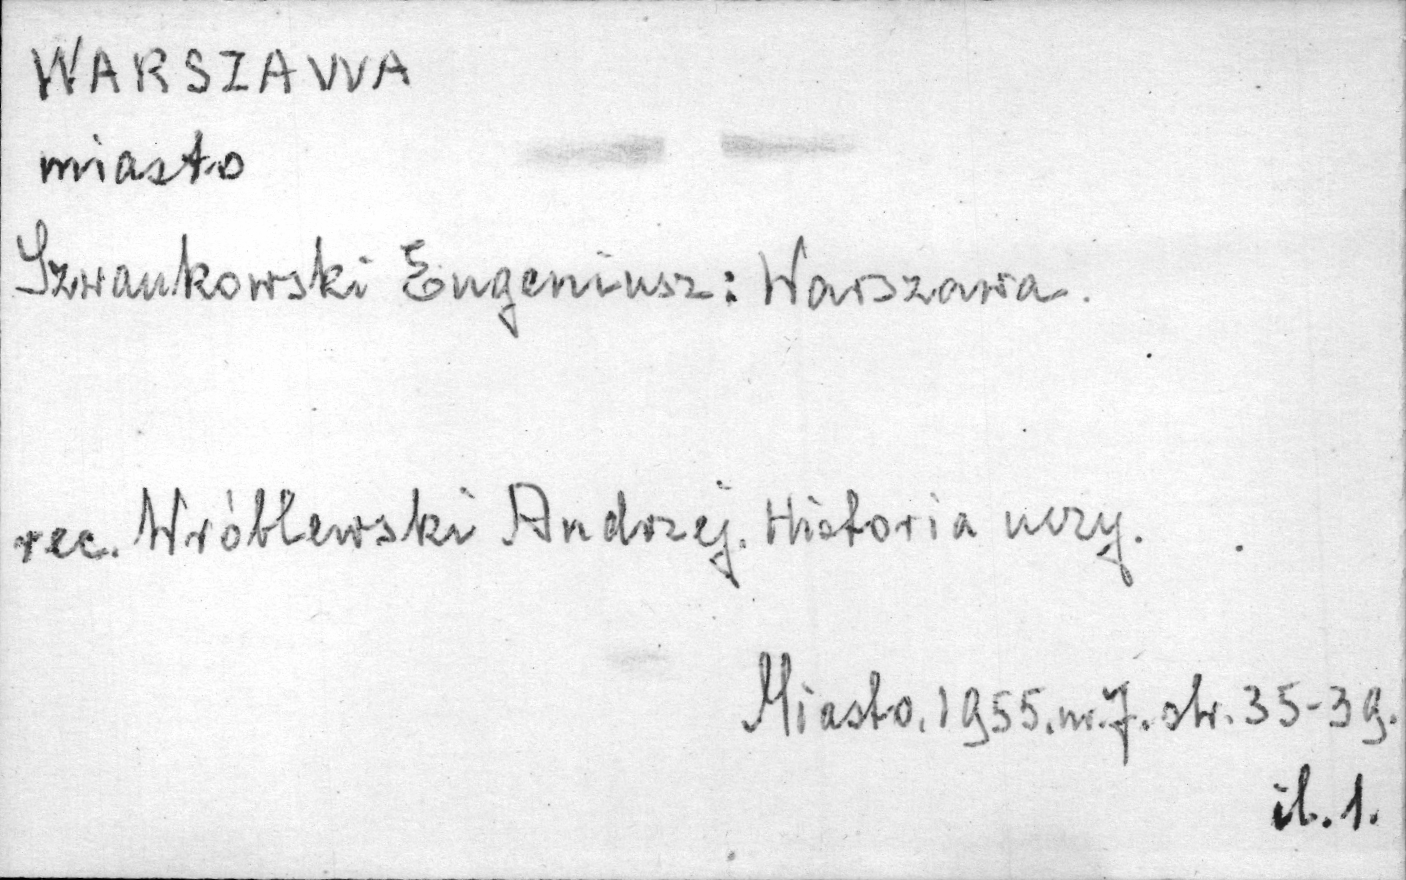 WARSZAWA
miasto
Szwankowski Eugeniusz: Warszawa.
rec. Wróblewski Andrzej. Historia uczy.
Miasto. 1955. nr. 7. str. 35-39.
il. 1.